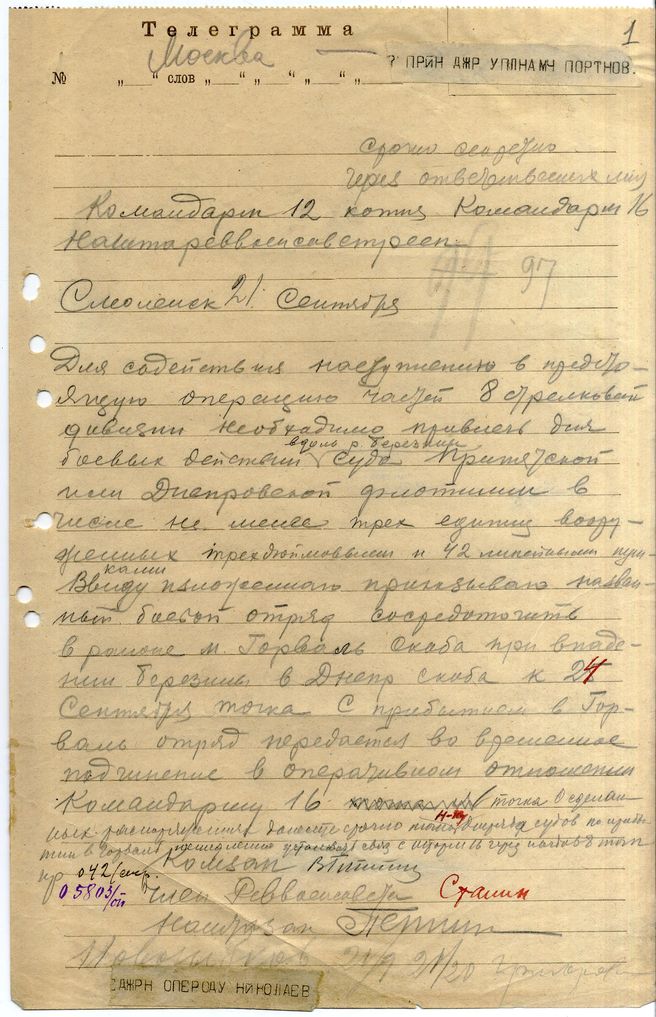 Телеграмма
1
Москва
№ „ “ слов „ “ „ “ „ “ „
? ПРИН ДЖР УППНАМЧ ПОРТНОВ.
срочно секретно
через ответственных лиц
Командарм 12 копия Командарм 16
97
Смоленск 21. Сентября
Для содействия наступлению в предсто-
ящую операцию частей 8 стрелковой
дивизии необходимо привлечь для
вдоль р. березины
боевых действий суда Припятской
или Днепровской флотилии в
числе не менее трех единиц воору-
женных трехдюймовыми и 42 линейными пуш-
ками
Ввиду изложенного приказываю назван-
ный боевой отряд сосредоточить
в районе м. Горваль скоба при впаде-
нии березины в Днепр скоба к 24
Сентября точка С прибытием в Гор-
валь отряд передается во временное
подчинение в оперативном отношении
Командарму 16 точка О сделан-
ных распоряжениях донесите срочно
Н-ку отряда судов по прибы-
тии в Горваль установить связь с
нр 042/
05805/оп
Комзап
Член Реввоенсовета Сталин
Наштазап Петин
21/9 20
ДЖРН ОПЕРОДУ НИКОЛАЕВ